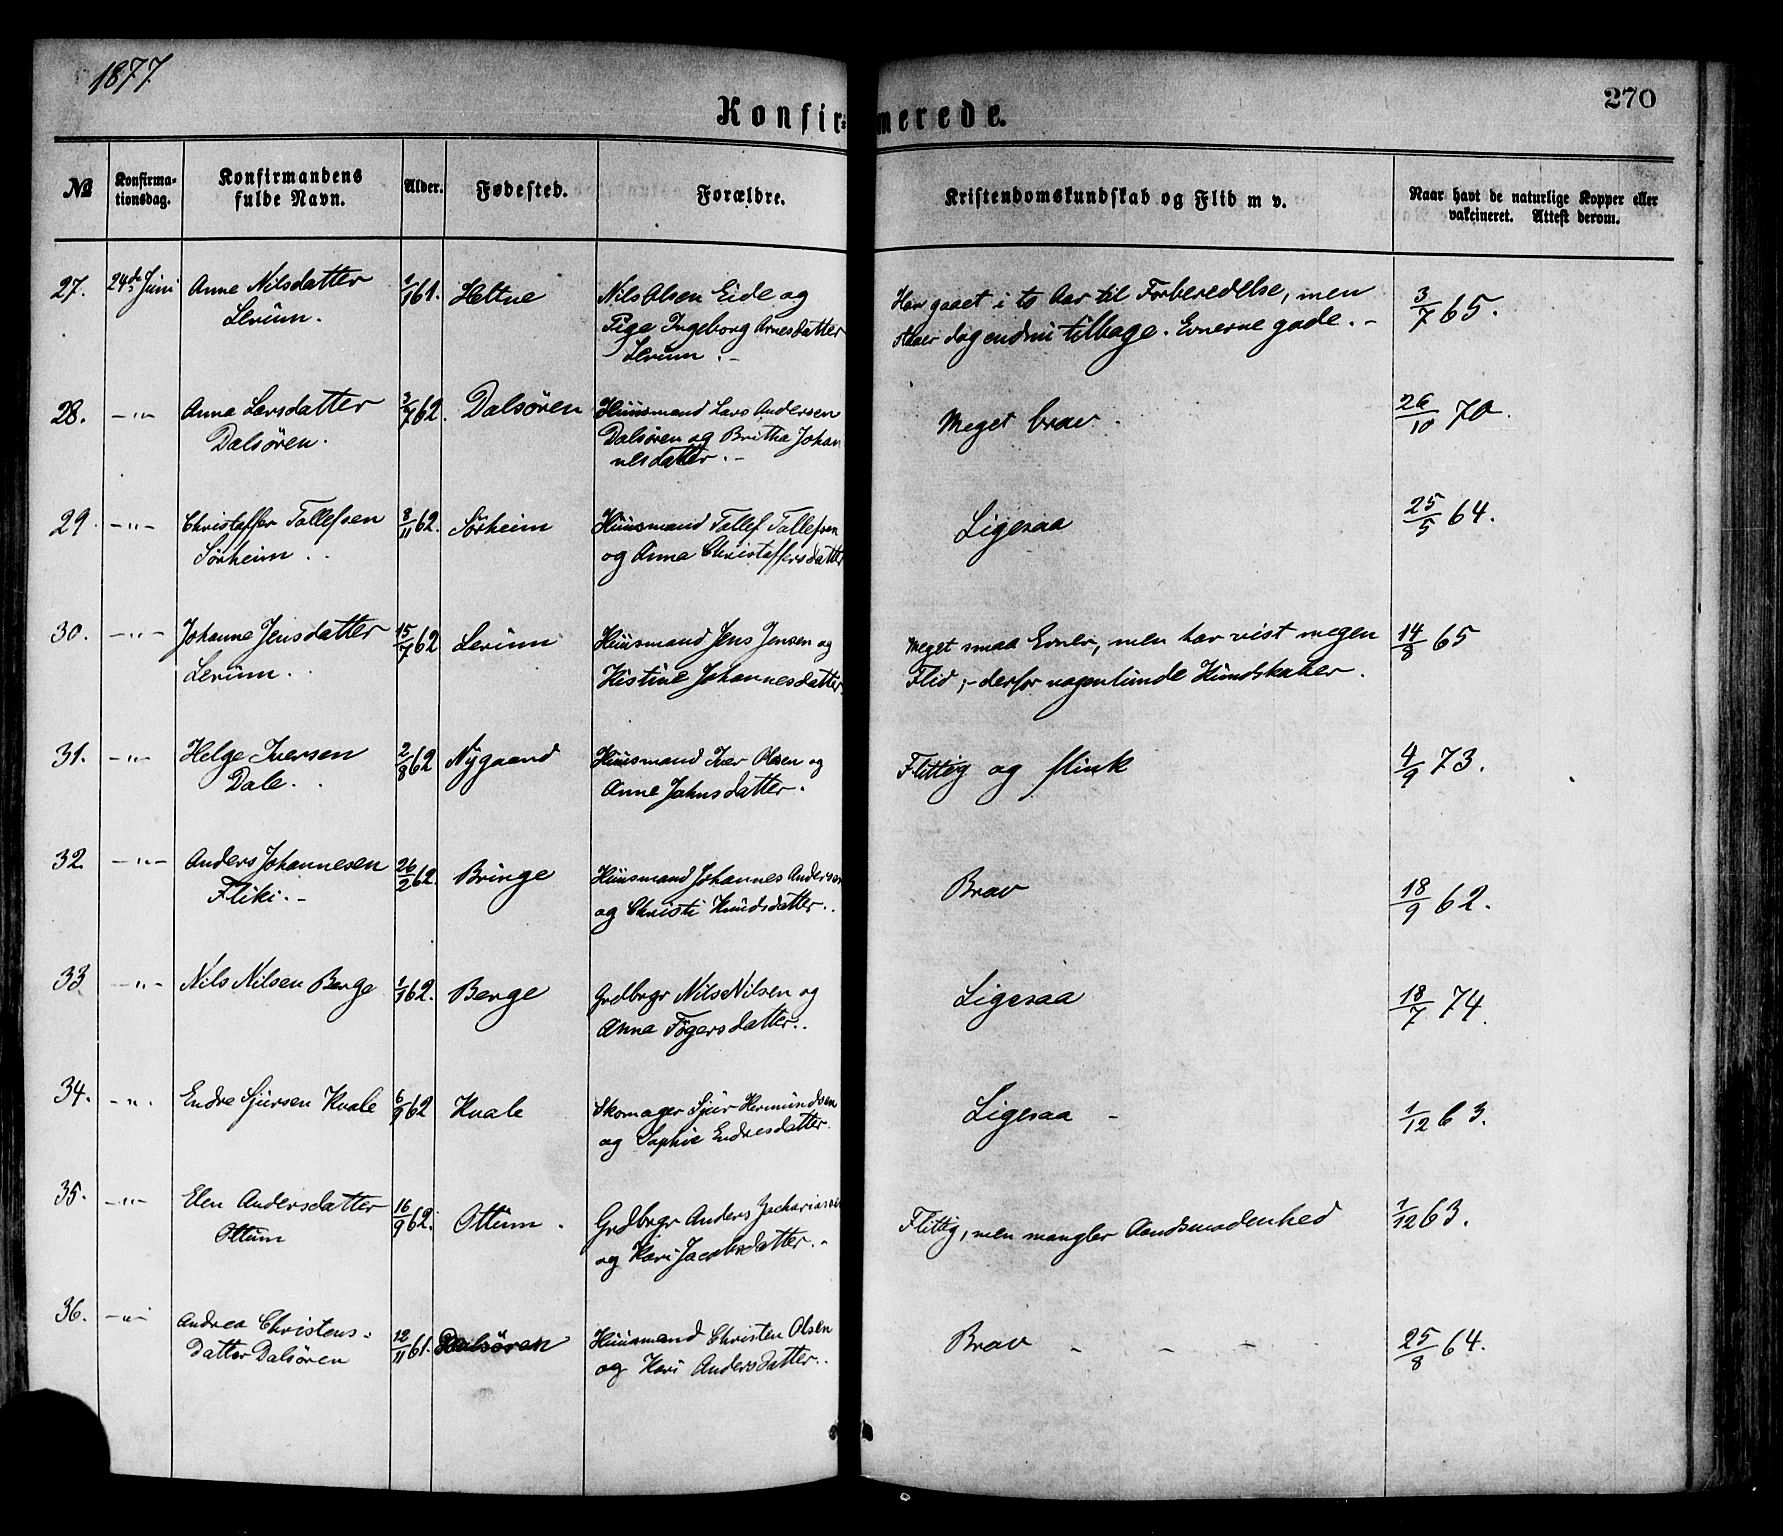 1877
270
Konfirmerede.
№ Konfirma-tionsdag. Konfirmandens fulde Navn. Alder. Fødested. Forældre. Kristendomskundskab og Flid m v. Naar havt de naturlige Kopper eller vakcineret. Attest derom.
27. 24de Juni Anne Nilsdatter 1/1 61. Heltne Nils Olsen Eide og Har gaaet i to Aar til Forberedelse, men 3/7 65.
Lerum. Pige Ingeborg Arnesdatter staaer dog endnu tilbage. Evnerne gode. -
Lerum. -
28. -"- Anna Larsdatter 3/7 62. Dalsören Huusmand Lars Andersen Meget brav. 26/10 70.
Dalsören. Dalsören og Britha Johan
nesdatter. -
29. -"- Christoffer Tollefsen 8/11 62. Sörheim Huusmand Tollef Tollefsen Ligesaa 25/5 64.
Sörheim. og Anna Christoffersdatter
30. -"- Johanne Jensdatter 15/7 62 Lerum Huusmand Jens Jensen og Meget smaa Evner, men har vist megen 14/8 65
Lerum. Kistine Johannesdatter. Flid, - derfor nogenlunde Kundskaber.
31. -"- Helge Iversen 2/8 62 Nygaard Huusmand Iver Olsen og Flittig og flink 4/9 73.
Dale. Anne Johnsdatter.
32 -"- Anders Johannesen 26/2 62. Bringe Huusmand Johannes Andersen Brav 18/9 62.
Fliki. - og Christi Knudsdatter.
33 -"- Nils Nilsen Berge 1/1 62. Berge Grdbrgr Nils Nilsen og Ligesaa 18/7 74.
Anna Fögersdatter.
34. -"- Endre Sjursen Kvale 6/9 62 Kvale Skomager Sjur Hermundsen Ligesaa - 1/12 63.
og Sophie Endresdatter.
35. -"- Elen Andersdatter 16/9 62. Ottum. Grdbrgr Anders Zachariassen Flittig, men mangler Aandsmodenhed 1/12 63.
Ottum og Kari Jacobsdatter. -
36. -"- Andrea Christens- 12/11 61. Dalsören Huusmand Christen Olsen Brav - - - 25/8 64.
datter Dalsören og Kari Andersdatter.